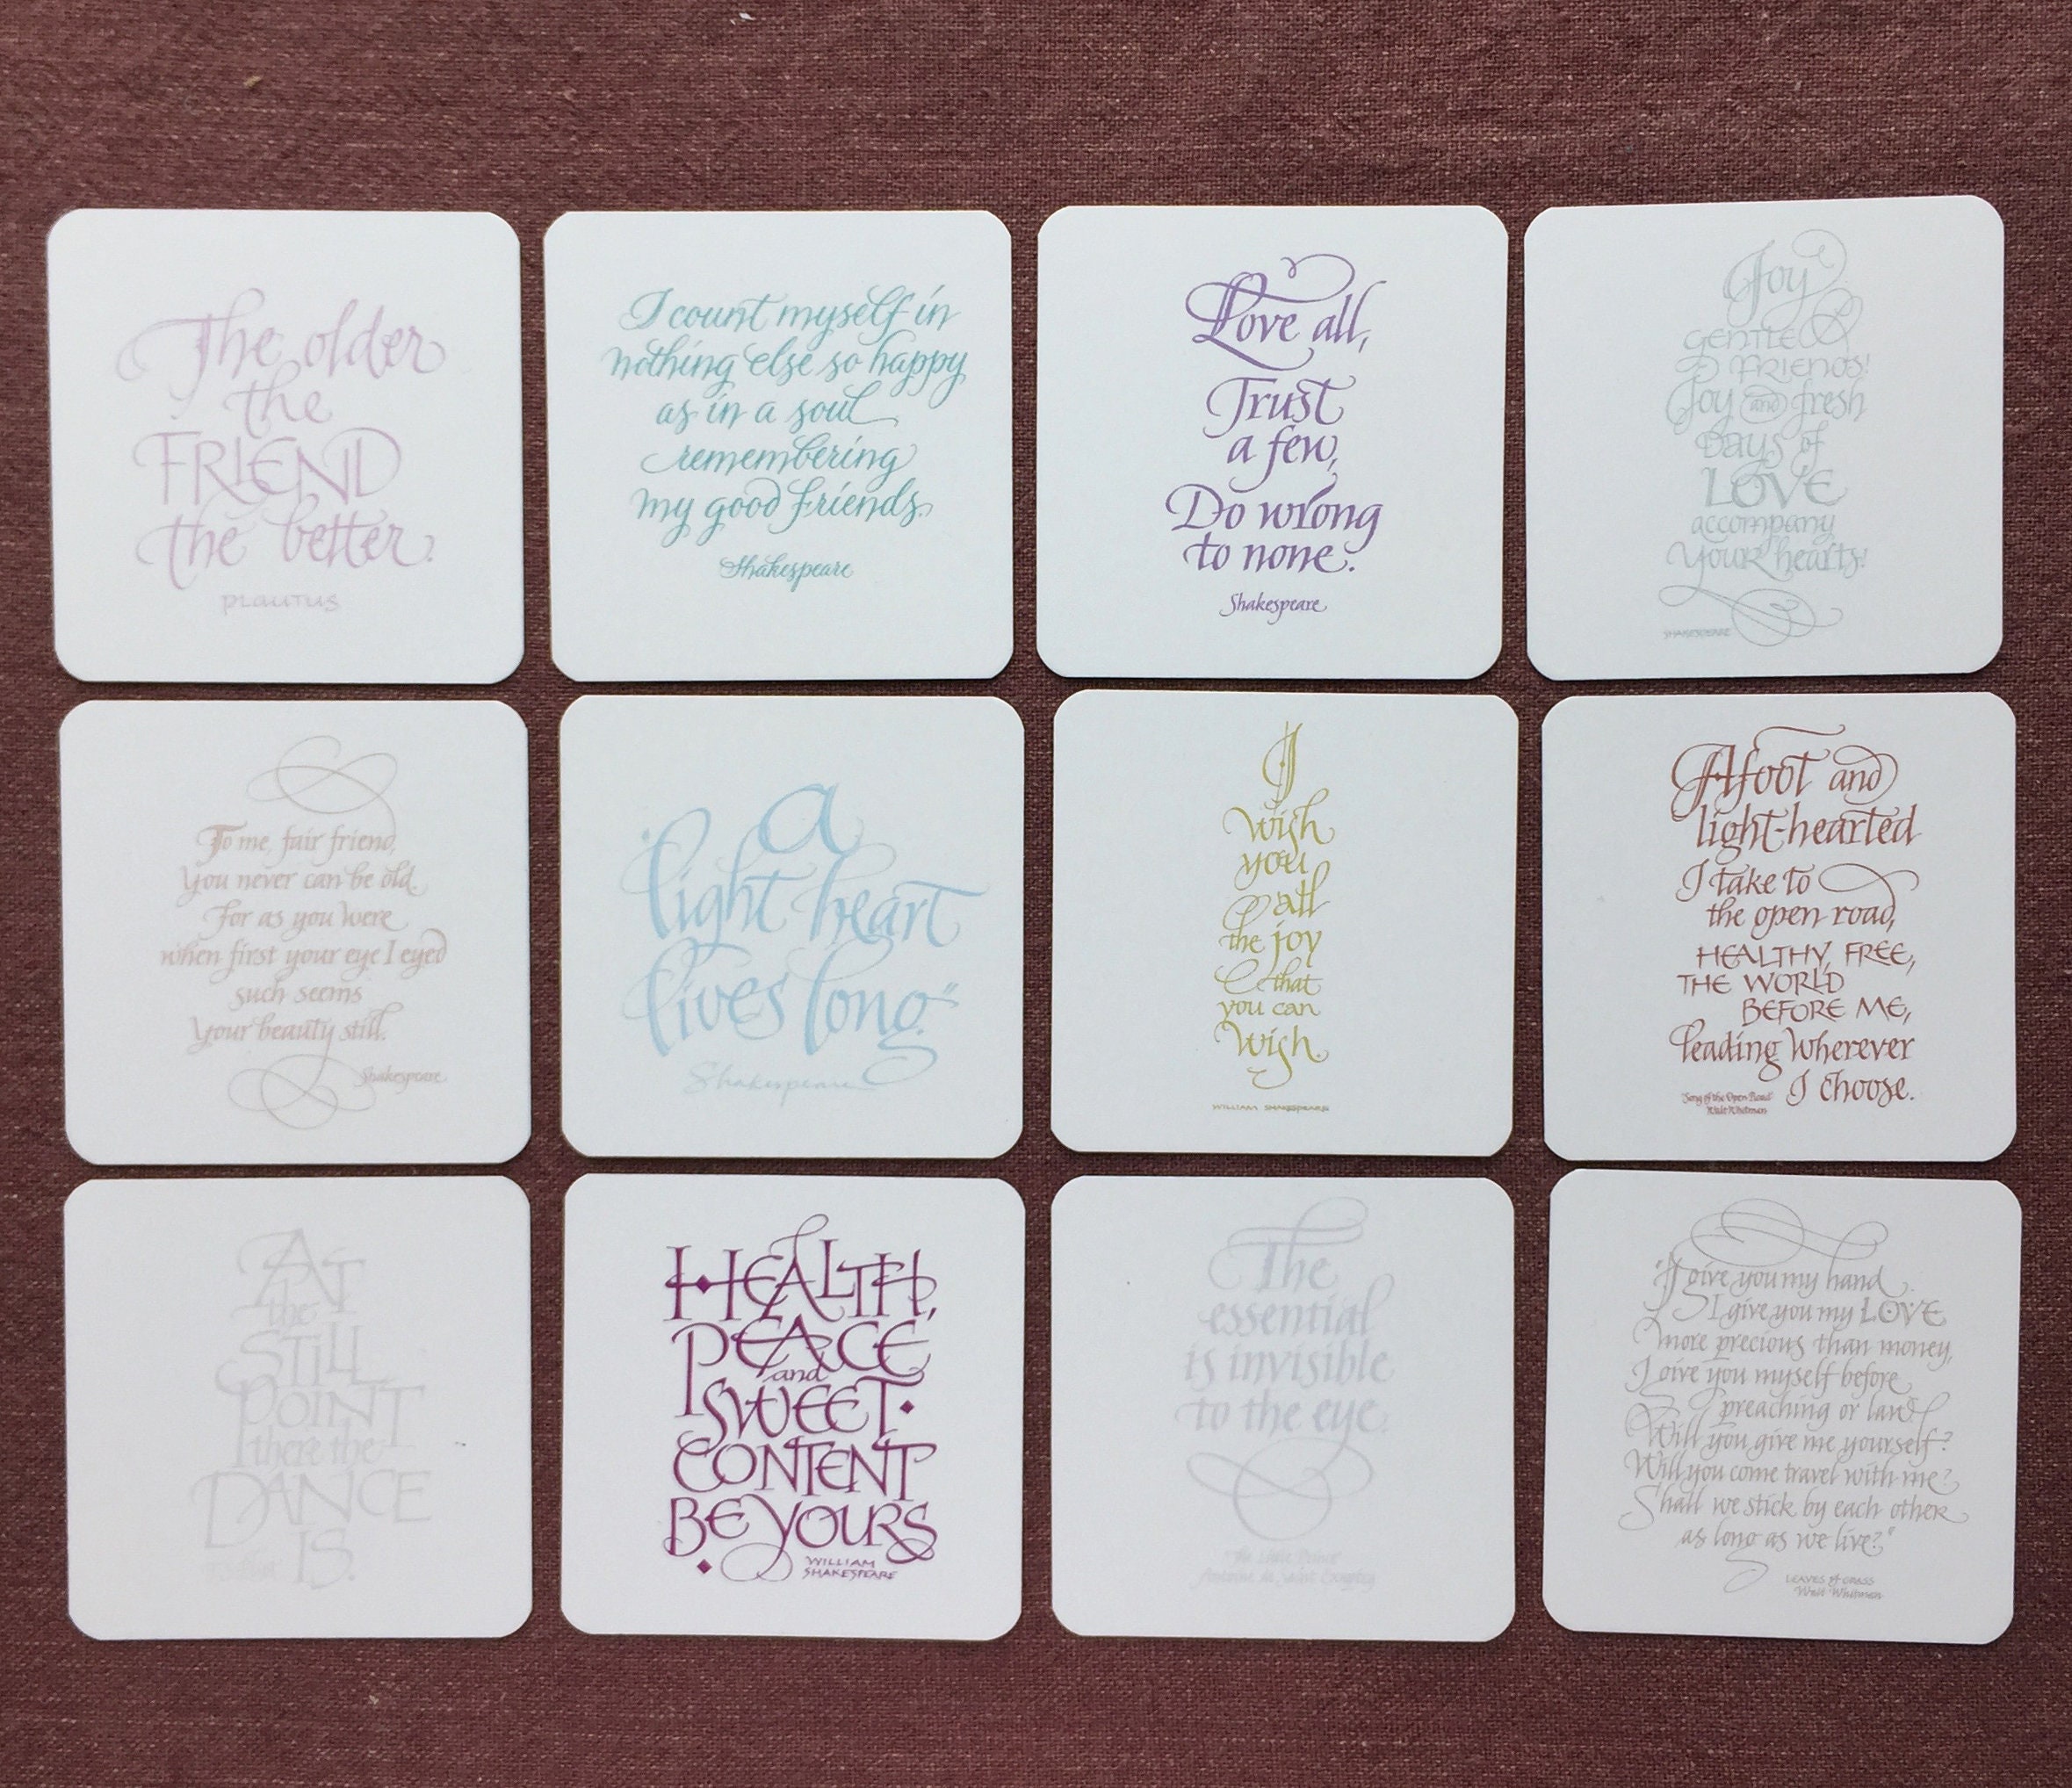 The older
the
FRIEND
the better.
PLAUTUS
I count myself in
nothing else so happy
as in a soul
remembering
my good friends.
Shakespeare
Love all,
Trust
a few,
Do wrong
to none.
Shakespeare
Joy
GENTLE
FRIENDS!
Joy and fresh
Days of
LOVE
accompany
Your hearts!
SHAKESPEARE
To me, fair friend,
You never can be old.
For as you were
when first your eye I eyed
such seems
Your beauty still.
Shakespeare
"a
light heart
lives long."
Shakespeare
I
wish
you
all
the joy
that
you can
wish.
WILLIAM SHAKESPEARE
Afoot and
light-hearted
I take to
the open road,
HEALTHY, FREE,
THE WORLD
BEFORE ME,
leading wherever
I choose.
Song of the Open Road
Walt Whitman
AT
the
STILL
POINT
there the
DANCE
IS.
HEALTH,
PEACE
and
SWEET
CONTENT
BE YOURS
WILLIAM
SHAKESPEARE
The
essential
is invisible
to the eye.
The Little Prince
Antoine de Saint Exupéry
"I give you my hand
I give you my LOVE
more precious than money,
I give you myself before
preaching or law.
Will you give me yourself?
Will you come travel with me?
Shall we stick by each other
as long as we live?"
LEAVES of GRASS
Walt Whitman